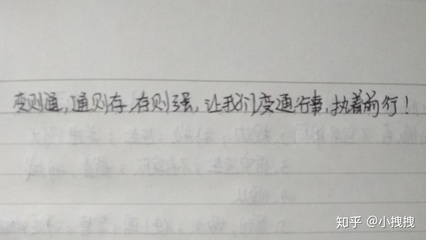 变则通,通则存,存则强,让我们变通行事,执着前行!
知乎 @小拽拽